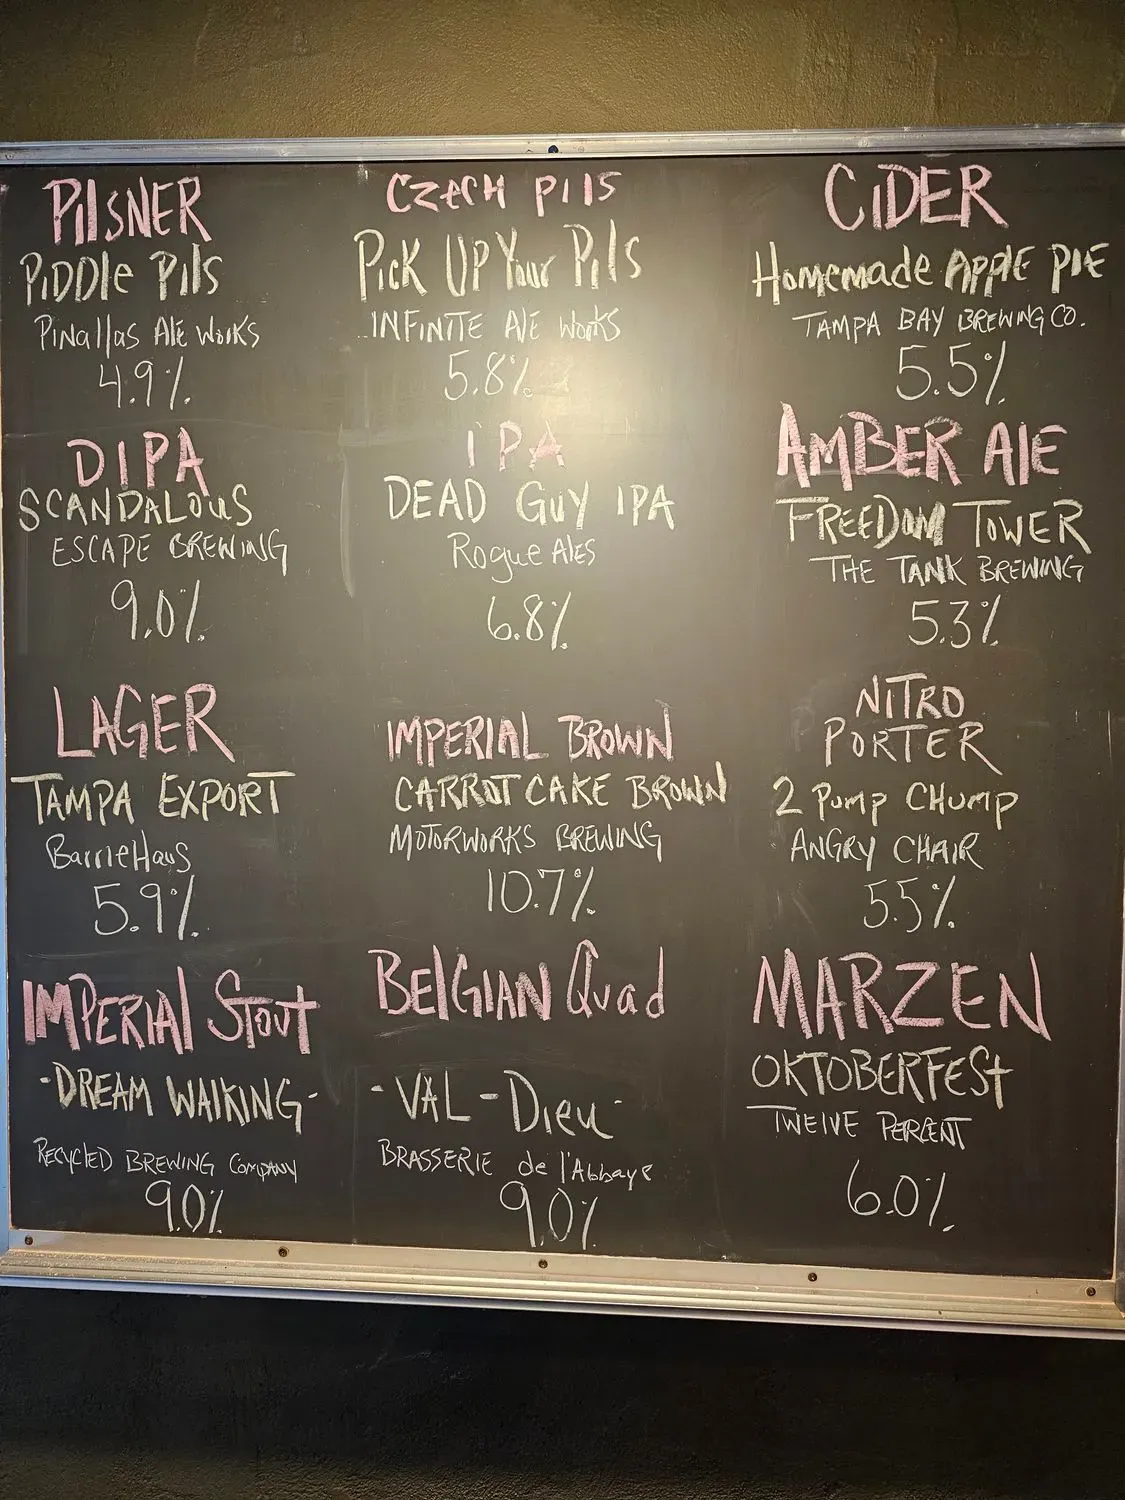 PilSNER
PiDDle Pils
Pinallas Ale Works
4.9%
CZECH PilS
PicK UP Your Pils
INFINITE Ale works
5.8%
CiDER
Homemade APPlE PiE
TAMPA BAY BREWING CO.
5.5%
DIPA
SCANDALOUS
ESCAPE BREWING
9.0%
IPA
DEAD GUY IPA
Rogue Ales
6.8%
AMBER AlE
FREEDOM TOWER
THE TANK BREWING
5.3%
LAGER
TAMPA EXPORT
BarrieHaus
5.9%
IMPERIAL BROWN
CARROT CAKE BROWN
MOTORWORKS BREWING
10.7%
NITRO
PORTER
2 Pump CHUMP
ANGRY CHAIR
5.5%
IMPERIAl Stout
-DREAM WAlKING-
RECYCLED BREWING COMPANY
9.0%
BElGIAN Quad
-VAL-Dieu-
BRASSERIE de l'Abbaye
9.0%
MARZEN
OKTOBERFESt
TWElVE PERCENT
6.0%